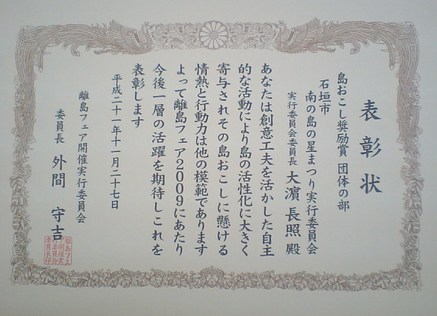 表彰状
島おこし奨励賞 団体の部
石垣市
南の島の星まつり実行委員会
実行委員会委員長 大濵長照 殿
あなたは創意工夫を活かした自主
的な活動により島の活性化に大きく
寄与されその島おこしに懸ける
情熱と行動力は他の模範であります
よって離島フェア2009にあたり
今後一層の活躍を期待しこれを
表彰します
平成二十一年十一月二十七日
離島フェア開催実行委員会
委員長 外間 守吉